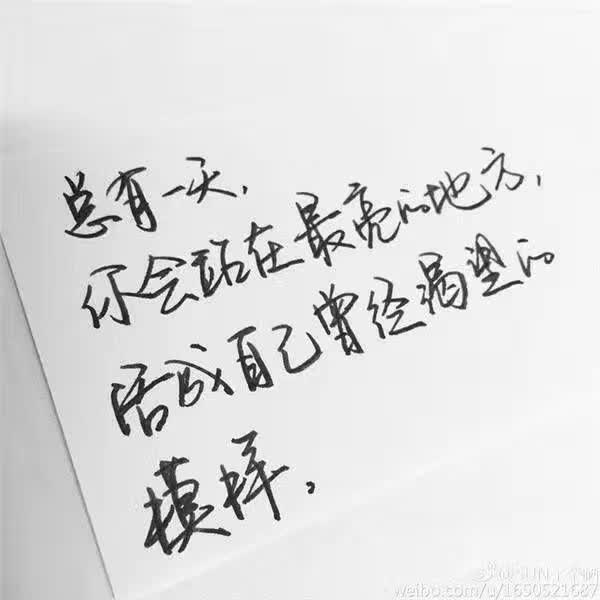 总有一天,
你会站在最亮的地方,
活成自己曾经渴望的
模样。
weibo.com/u/1650521687